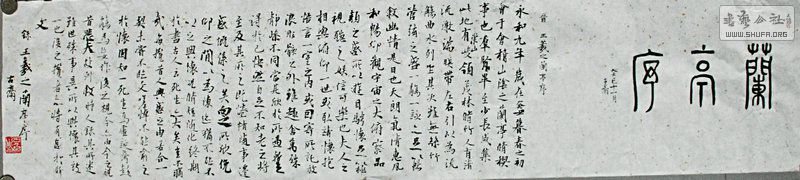 書法公社
WWW.SHUFA.ORG
蘭亭序
癸巳十一月
錄王羲之蘭亭序
永和九年歲在癸丑暮春之初
會于會稽山陰之蘭亭脩稧
事也群賢畢至少長咸集
此地有崇山峻領茂林脩竹又有清
流激湍映帶左右引以為流
觴曲水列坐其次雖無絲竹
管絃之盛一觴一詠亦足以暢
敘幽情是日也天朗氣清惠風
和暢仰觀宇宙之大俯察品
類之盛所以遊目騁懷足以極
視聽之娛信可樂也夫人之
相與俯仰一世或取諸懷抱
悟言一室之內或因寄所託放
浪形骸之外雖趣舍萬殊
靜躁不同當其欣於所遇暫
得於己快然自足不知老之將
至及其所之既惓情隨事遷
感慨係之矣向之所欣俛
仰之間以為陳迹猶不能不
以之興懷況脩短隨化終期
於盡古人云死生亦大矣豈不痛
哉每攬昔人興感之由若合一
契未嘗不臨文嗟悼不能喻之
於懷固知一死生為虛誕齊彭
殤為妄作後之視今亦由今之視
昔悲夫故列敘時人錄其所述
雖世殊事異所以興懷其致
一也後之攬者亦將有感於斯
文
錄王羲之蘭亭序